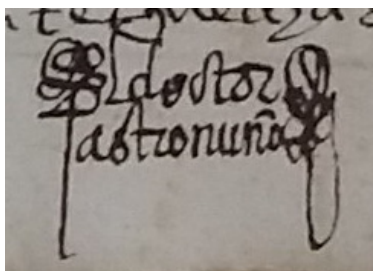 El doctor
castronuño